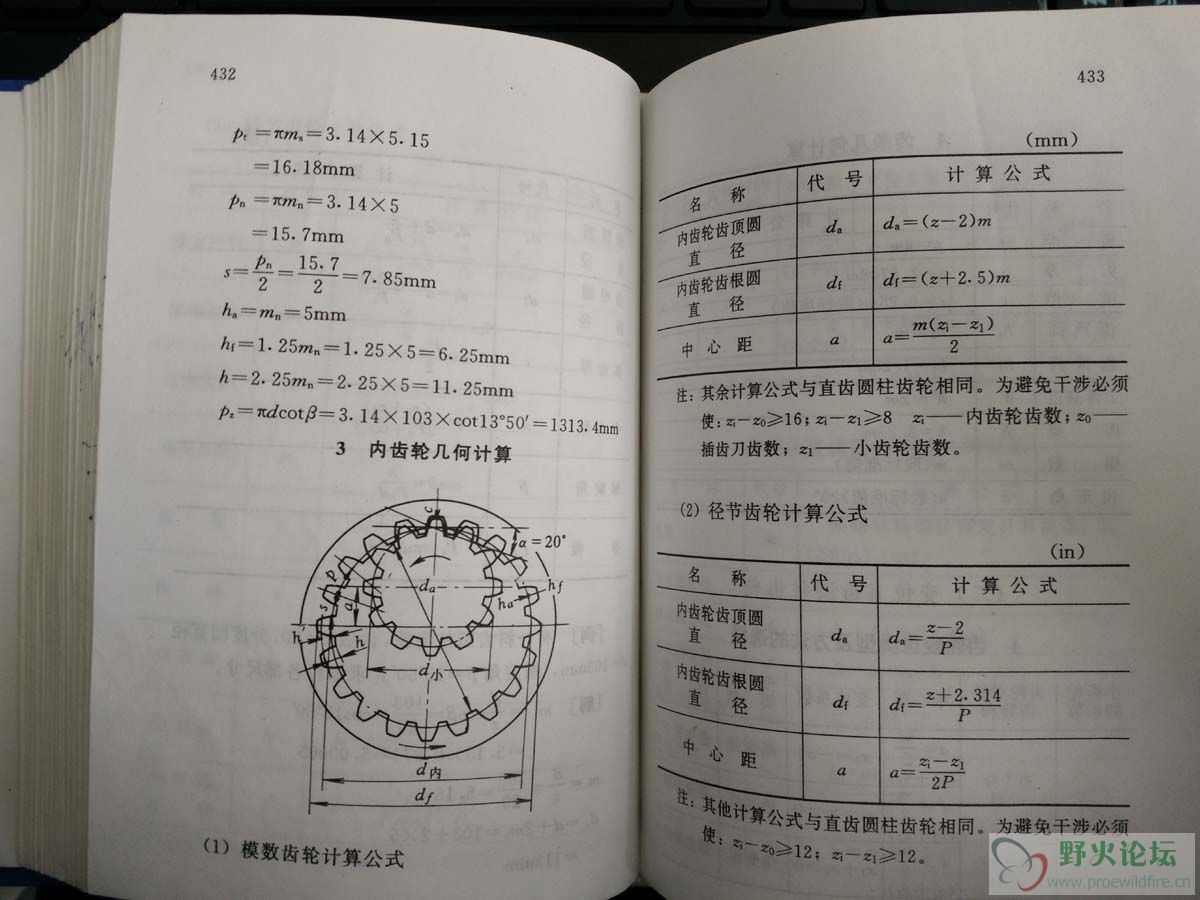 432
pt=πms=3.14×5.15
=16.18mm
pn=πmn=3.14×5
=15.7mm
s=pn/2=15.7/2=7.85mm
ha=mn=5mm
hf=1.25mn=1.25×5=6.25mm
h=2.25mn=2.25×5=11.25mm
pz=πdcotβ=3.14×103×cot13°50′=1313.4mm
3 内齿轮几何计算
c
α=20°
p
s
a
da
ha
hf
h′
h
d小
d内
df
(1) 模数齿轮计算公式
433
(mm)
名 称 代 号 计 算 公 式
内齿轮齿顶圆
直 径 da da=(z-2)m
内齿轮齿根圆
直 径 df df=(z+2.5)m
中 心 距 a a=m(zi-z1)/2
注: 其余计算公式与直齿圆柱齿轮相同。为避免干涉必须
使: zi-z0≥16; zi-z1≥8 zi——内齿轮齿数; z0——
插齿刀齿数; z1——小齿轮齿数。
(2) 径节齿轮计算公式
(in)
名 称 代 号 计 算 公 式
内齿轮齿顶圆
直 径 da da=z-2/P
内齿轮齿根圆
直 径 df df=z+2.314/P
中 心 距 a a=zi-z1/2P
注: 其他计算公式与直齿圆柱齿轮相同。为避免干涉必须
使: zi-z0≥12; zi-z1≥12。
野火论坛
www.proewildfire.cn